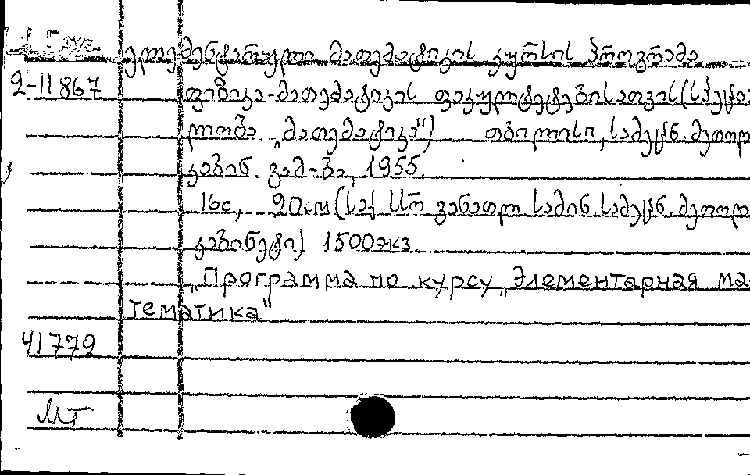 ელემენტარული მათემატიკის კურსის პროგრამა
2-11867 ფიზიკა-მათემატიკის ფაკულტეტებისათვის (სპეცია
ლობა „მათემატიკა") თბილისი, სამეცნ. მეთოდ
კაბინ. გამ-ბა, 1955.
16с, 20см (საქ სსრ განათლ. სამინ. სამეცნ. მეთოდ
კაბინეტი) 1500экз.
„Программа по курсу „Элементарная ма-
тематика"
41779
МТ